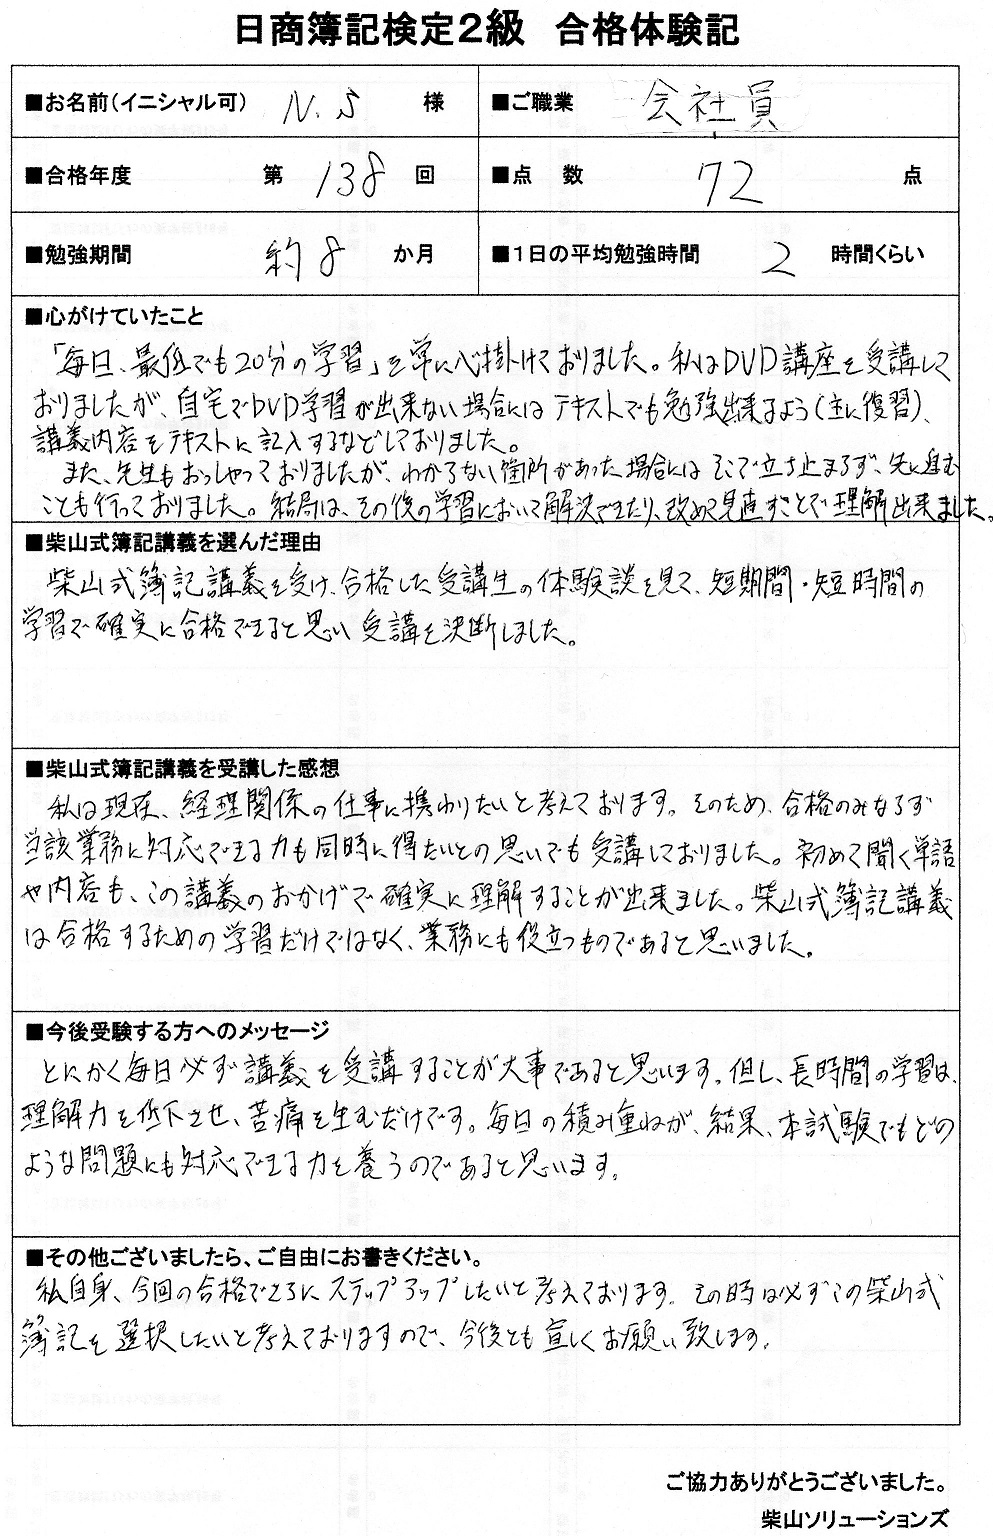 日商簿記検定2級 合格体験記
■お名前(イニシャル可) N.S 様 ■ご職業 会社員
■合格年度 第 138 回 ■点 数 72 点
■勉強期間 約8 か月 ■1日の平均勉強時間 2 時間くらい
■心がけていたこと
「毎日、最低でも20分の学習」を常に心掛けておりました。私はDVD講座を受講して
おりましたが、自宅でDVD学習が出来ない場合にはテキストでも勉強出来るよう(主に復習)、
講義内容をテキストに記入するなどしておりました。
また、先生もおっしゃっておりましたが、わからない箇所があった場合にはそこで立ち止まらず、先に進む
ことも行っておりました。結局は、その後の学習において解決できたり、改めて見直すことで理解出来ました。
■柴山式簿記講義を選んだ理由
柴山式簿記講義を受け、合格した受講生の体験談を見て、短期間・短時間の
学習で確実に合格できると思い受講を決断しました。
■柴山式簿記講義を受講した感想
私は現在、経理関係の仕事に携わりたいと考えております。そのため、合格のみならず
当該業務に対応できる力も同時に得たいとの思いでも受講しておりました。初めて聞く単語
や内容も、この講義のおかげで確実に理解することが出来ました。柴山式簿記講義
は合格するための学習だけではなく、業務にも役立つものであると思いました。
■今後受験する方へのメッセージ
とにかく毎日必ず講義を受講することが大事であると思います。但し、長時間の学習は、
理解力を低下させ、苦痛を生むだけです。毎日の積み重ねが、結果、本試験でもどの
ような問題にも対応できる力を養うのであると思います。
■その他ございましたら、ご自由にお書きください。
私自身、今回の合格でさらにステップアップしたいと考えております。その時は必ずこの柴山式
簿記を選択したいと考えておりますので、今後とも宜しくお願い致します。
ご協力ありがとうございました。
柴山ソリューションズ